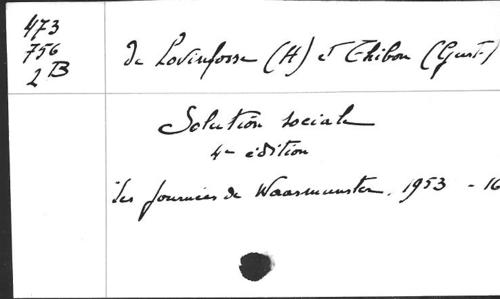 473
756
2 B
de Lovinfosse (H) et Thibon (Gust)
Solution sociale
4e édition
Les journées de Waasmunster, 1953 - 16